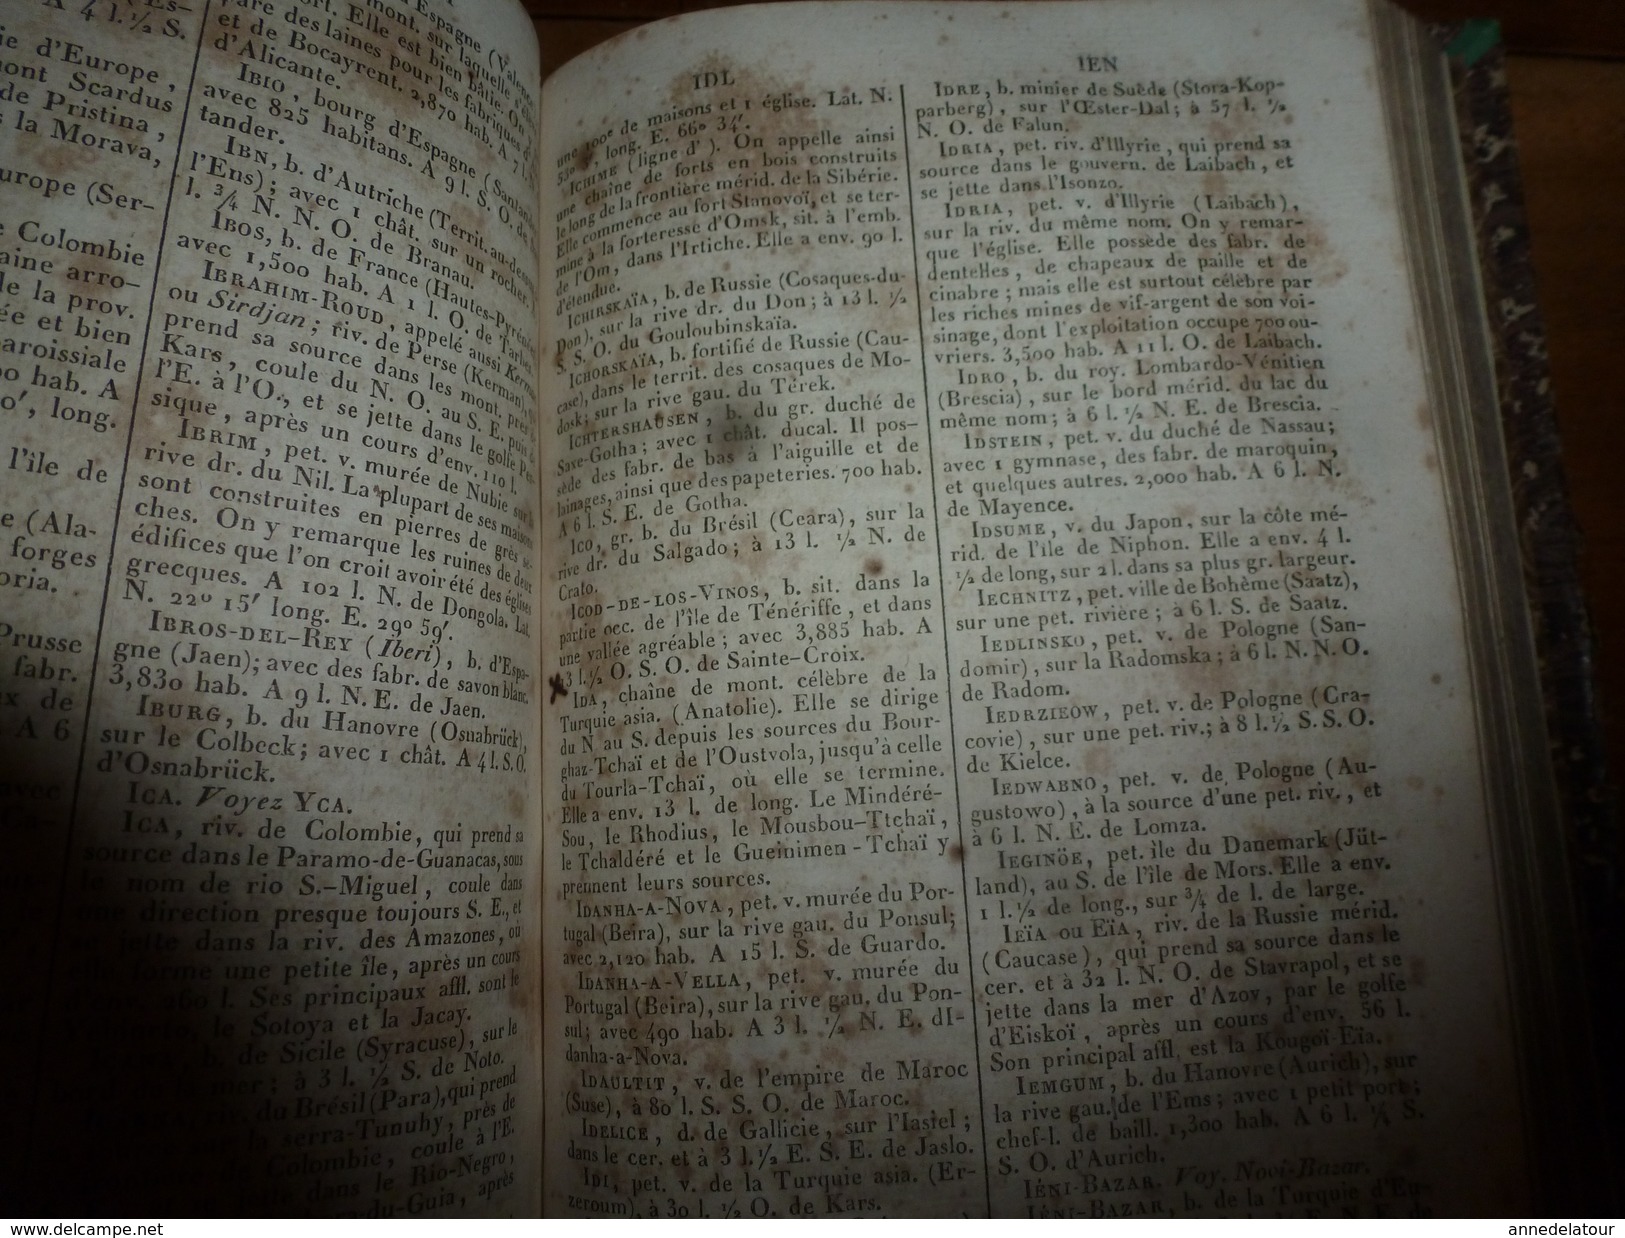 A 4 l. ½ S.
ie d'Europe,
mont Scardus
de Pristina,
s la Morava,
urope (Ser-
e Colombie
aine arro-
de la prov.
ée et bien
paroissiale
hab. A
long.
l'île de
e (Ala-
forges
oria.
Prusse
fabr.
x de
A 6
et de Bocayrent. 2,870 hab. A 7 l.
d'Alicante.
IBIO, bourg d'Espagne
avec 825 habitans. A 9 l. S. O. de
tander.
IBN, b. d'Autriche (Territ. au-dessous
l'Ens); avec 1 chât. sur un rocher.
l. ¾ N. N. O. de Branau.
IBOS, b. de France (Hautes-Pyrénées
avec 1,500 hab. A 1 l. O. de Tarbes.
IBRAHIM-ROUD, appelé aussi
ou Sirdjan; riv. de Perse (Kerman),
prend sa source dans les mont. près
Kars, coule du N. O. au S. E. puis
l'E. à l'O., et se jette dans le golfe Per-
sique, après un cours d'env. 110 l.
IBRIM, pet. v. murée de Nubie sur la
rive dr. du Nil. La plupart de ses maisons
sont construites en pierres de grès sè-
ches. On y remarque les ruines de deux
édifices que l'on croit avoir été des églises
grecques. A 102 l. N. de Dongola. Lat.
N. 22° 15′ long. E. 29° 59′.
IBROS-DEL-REY (Iberi), b. d'Espa-
gne (Jaen); avec des fabr. de savon blanc.
3,830 hab. A 9 l. N. E. de Jaen.
IBURG, b. du Hanovre (Osnabrück),
sur le Colbeck; avec 1 chât. A 4 l. S. O.
d'Osnabrück.
ICA. Voyez YCA.
ICA, riv. de Colombie, qui prend sa
source dans le Paramo-de-Guanacas, sous
le nom de rio S.-Miguel, coule dans
une direction presque toujours S. E., et
se jette dans la riv. des Amazones, où
elle forme une petite île, après un cours
260 l. Ses principaux affl. sont le
le Sotoya et la Jacay.
b. de Sicile (Syracuse), sur le
mer; à 3 l. ½ S. de Noto.
riv. du Brésil (Para), qui prend
la serra-Tunuhy, près de
de Colombie, coule à l'E.
jette dans le Rio-Negro,
après
IDL
une 100e de maisons et 1 église. Lat. N.
long. E. 66° 34′.
ICHIME (ligne d'). On appelle ainsi
une chaîne de forts en bois construits
le long de la frontière mérid. de la Sibérie.
Elle commence au fort Stanovoï, et se ter-
mine à la forteresse d'Omsk, sit. à l'emb.
de l'Om, dans l'Irtiche. Elle a env. 90 l.
d'étendue.
ICHIRSKAÏA, b. de Russie (Cosaques-du-
Don), sur la rive dr. du Don; à 13 l. ½
S. S. O. du Gouloubinskaïa.
ICHORSKAÏA, b. fortifié de Russie (Cau-
case), dans le territ. des cosaques de Mo-
dosk; sur la rive gau. du Térek.
ICHTERSHAUSEN, b. du gr. duché de
Saxe-Gotha; avec 1 chât. ducal. Il pos-
sède des fabr. de bas à l'aiguille et de
lainages, ainsi que des papeteries. 700 hab.
A 6 l. S. E. de Gotha.
ICO, gr. b. du Brésil (Ceara), sur la
rive dr. du Salgado; à 13 l. ½ N. de
Crato.
ICOD-DE-LOS-VINOS, b. sit. dans la
partie occ. de l'île de Ténériffe, et dans
une vallée agréable; avec 3,885 hab. A
13 l. ½ O. S. O. de Sainte-Croix.
IDA, chaîne de mont. célèbre de la
Turquie asia. (Anatolie). Elle se dirige
du N. au S. depuis les sources du Bour-
ghaz-Tchaï et de l'Oustvola, jusqu'à celle
du Tourla-Tchaï, où elle se termine.
Elle a env. 13 l. de long. Le Mindéré-
Sou, le Rhodius, le Mousbou-Ttchaï,
le Tchaldéré et le Gueinimen-Tchaï y
prennent leurs sources.
IDANHA-A-NOVA, pet. v. murée du Por-
tugal (Beira), sur la rive gau. du Ponsul;
avec 2,120 hab. A 15 l. S. de Guardo.
IDANHA-A-VELLA, pet. v. murée du
Portugal (Beira), sur la rive gau. du Pon-
sul; avec 490 hab. A 3 l. ½ N. E. dI-
danha-a-Nova.
IDAULTIT, v. de l'empire de Maroc
(Suse), à 80 l. S. S. O. de Maroc.
IDELICE, d. de Gallicie, sur l'Iasiel;
dans le cer. et à 3 l. ½ E. S. E. de Jaslo.
IDI, pet. v. de la Turquie asia. (Er-
zeroum), à 30 l. ½ O. de Kars.
IEN
IDRE, b. minier de Suède (Stora-Kop-
parberg), sur l'Œster-Dal; à 57 l. ½
N. O. de Falun.
IDRIA, pet. riv. d'Illyrie, qui prend sa
source dans le gouvern. de Laibach, et
se jette dans l'Isonzo.
IDRIA, pet. v. d'Illyrie (Laibach),
sur la riv. du même nom. On y remar-
que l'église. Elle possède des fabr. de
dentelles, de chapeaux de paille et de
cinabre; mais elle est surtout célèbre par
les riches mines de vif-argent de son voi-
sinage, dont l'exploitation occupe 700 ou-
vriers. 3,500 hab. A 11 l. O. de Laibach.
IDRO, b. du roy. Lombardo-Vénitien
(Brescia), sur le bord mérid. du lac du
même nom; à 6 l. ½ N. E. de Brescia.
IDSTEIN, pet. v. du duché de Nassau;
avec 1 gymnase, des fabr. de maroquin,
et quelques autres. 2,000 hab. A 6 l. N.
de Mayence.
IDSUME, v. du Japon, sur la côte mé-
rid. de l'île de Niphon. Elle a env. 4 l.
½ de long, sur 2 l. dans sa plus gr. largeur.
IECHNITZ, pet. ville de Bohème (Saatz),
sur une pet. rivière; à 6 l. S. de Saatz.
IEDLINSKO, pet. v. de Pologne (San-
domir), sur la Radomska; à 6 l. N. N. O.
de Radom.
IEDRZIEOW, pet. v. de Pologne (Cra-
covie), sur une pet. riv.; à 8 l. ½ S. S. O.
de Kielce.
IEDWABNO, pet. v. de Pologne (Au-
gustowo), à la source d'une pet. riv., et
à 6 l. N. E. de Lomza.
IEGINÖE, pet. île du Danemark (Jüt-
land), au S. de l'île de Mors. Elle a env.
1 l. ½ de long., sur ¾ de l. de large.
IEÏA OU EÏA, riv. de la Russie mérid.
(Caucase), qui prend sa source dans le
cer. et à 32 l. N. O. de Stavrapol, et se
jette dans la mer d'Azov, par le golfe
d'Eiskoï, après un cours d'env. 56 l.
Son principal affl. est la Kougoï-Eïa.
IEMGUM, b. du Hanovre (Aurich), sur
la rive gau. de l'Ems; avec 1 petit port;
chef-l. de baill. 1,300 hab. A 6 l. ¼ S.
S. O. d'Aurich.
IÉNI-BAZAR. Voy. Novi-Bazar.
IÉNI-BAZAR, b. de la Turquie d'Eu-
www.delcampe.net
annedelatour